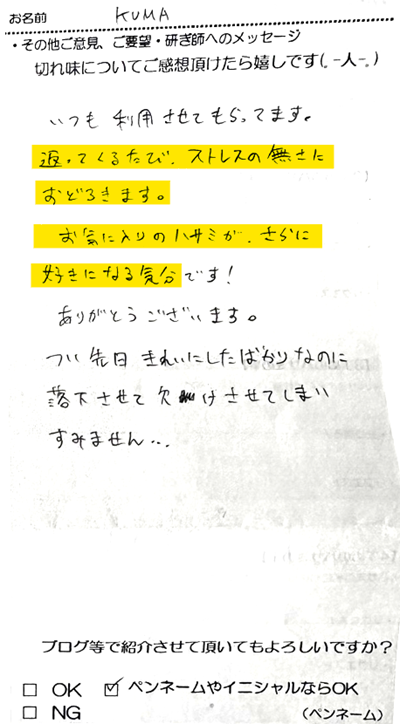 お名前 KUMA
・その他ご意見、ご要望・研ぎ師へのメッセージ
切れ味についてご感想頂けたら嬉しです(｡-人-｡)
いつも利用させてもらってます。
返ってくるたび、ストレスの無さに
おどろきます。
お気に入りのハサミが、さらに
好きになる気分です!
ありがとうございます。
つい先日きれいにしたばかりなのに
落下させて欠けさせてしまい
すみません...
ブログ等で紹介させて頂いてもよろしいですか?
□ OK ☑ ペンネームやイニシャルならOK
□ NG (ペンネーム)